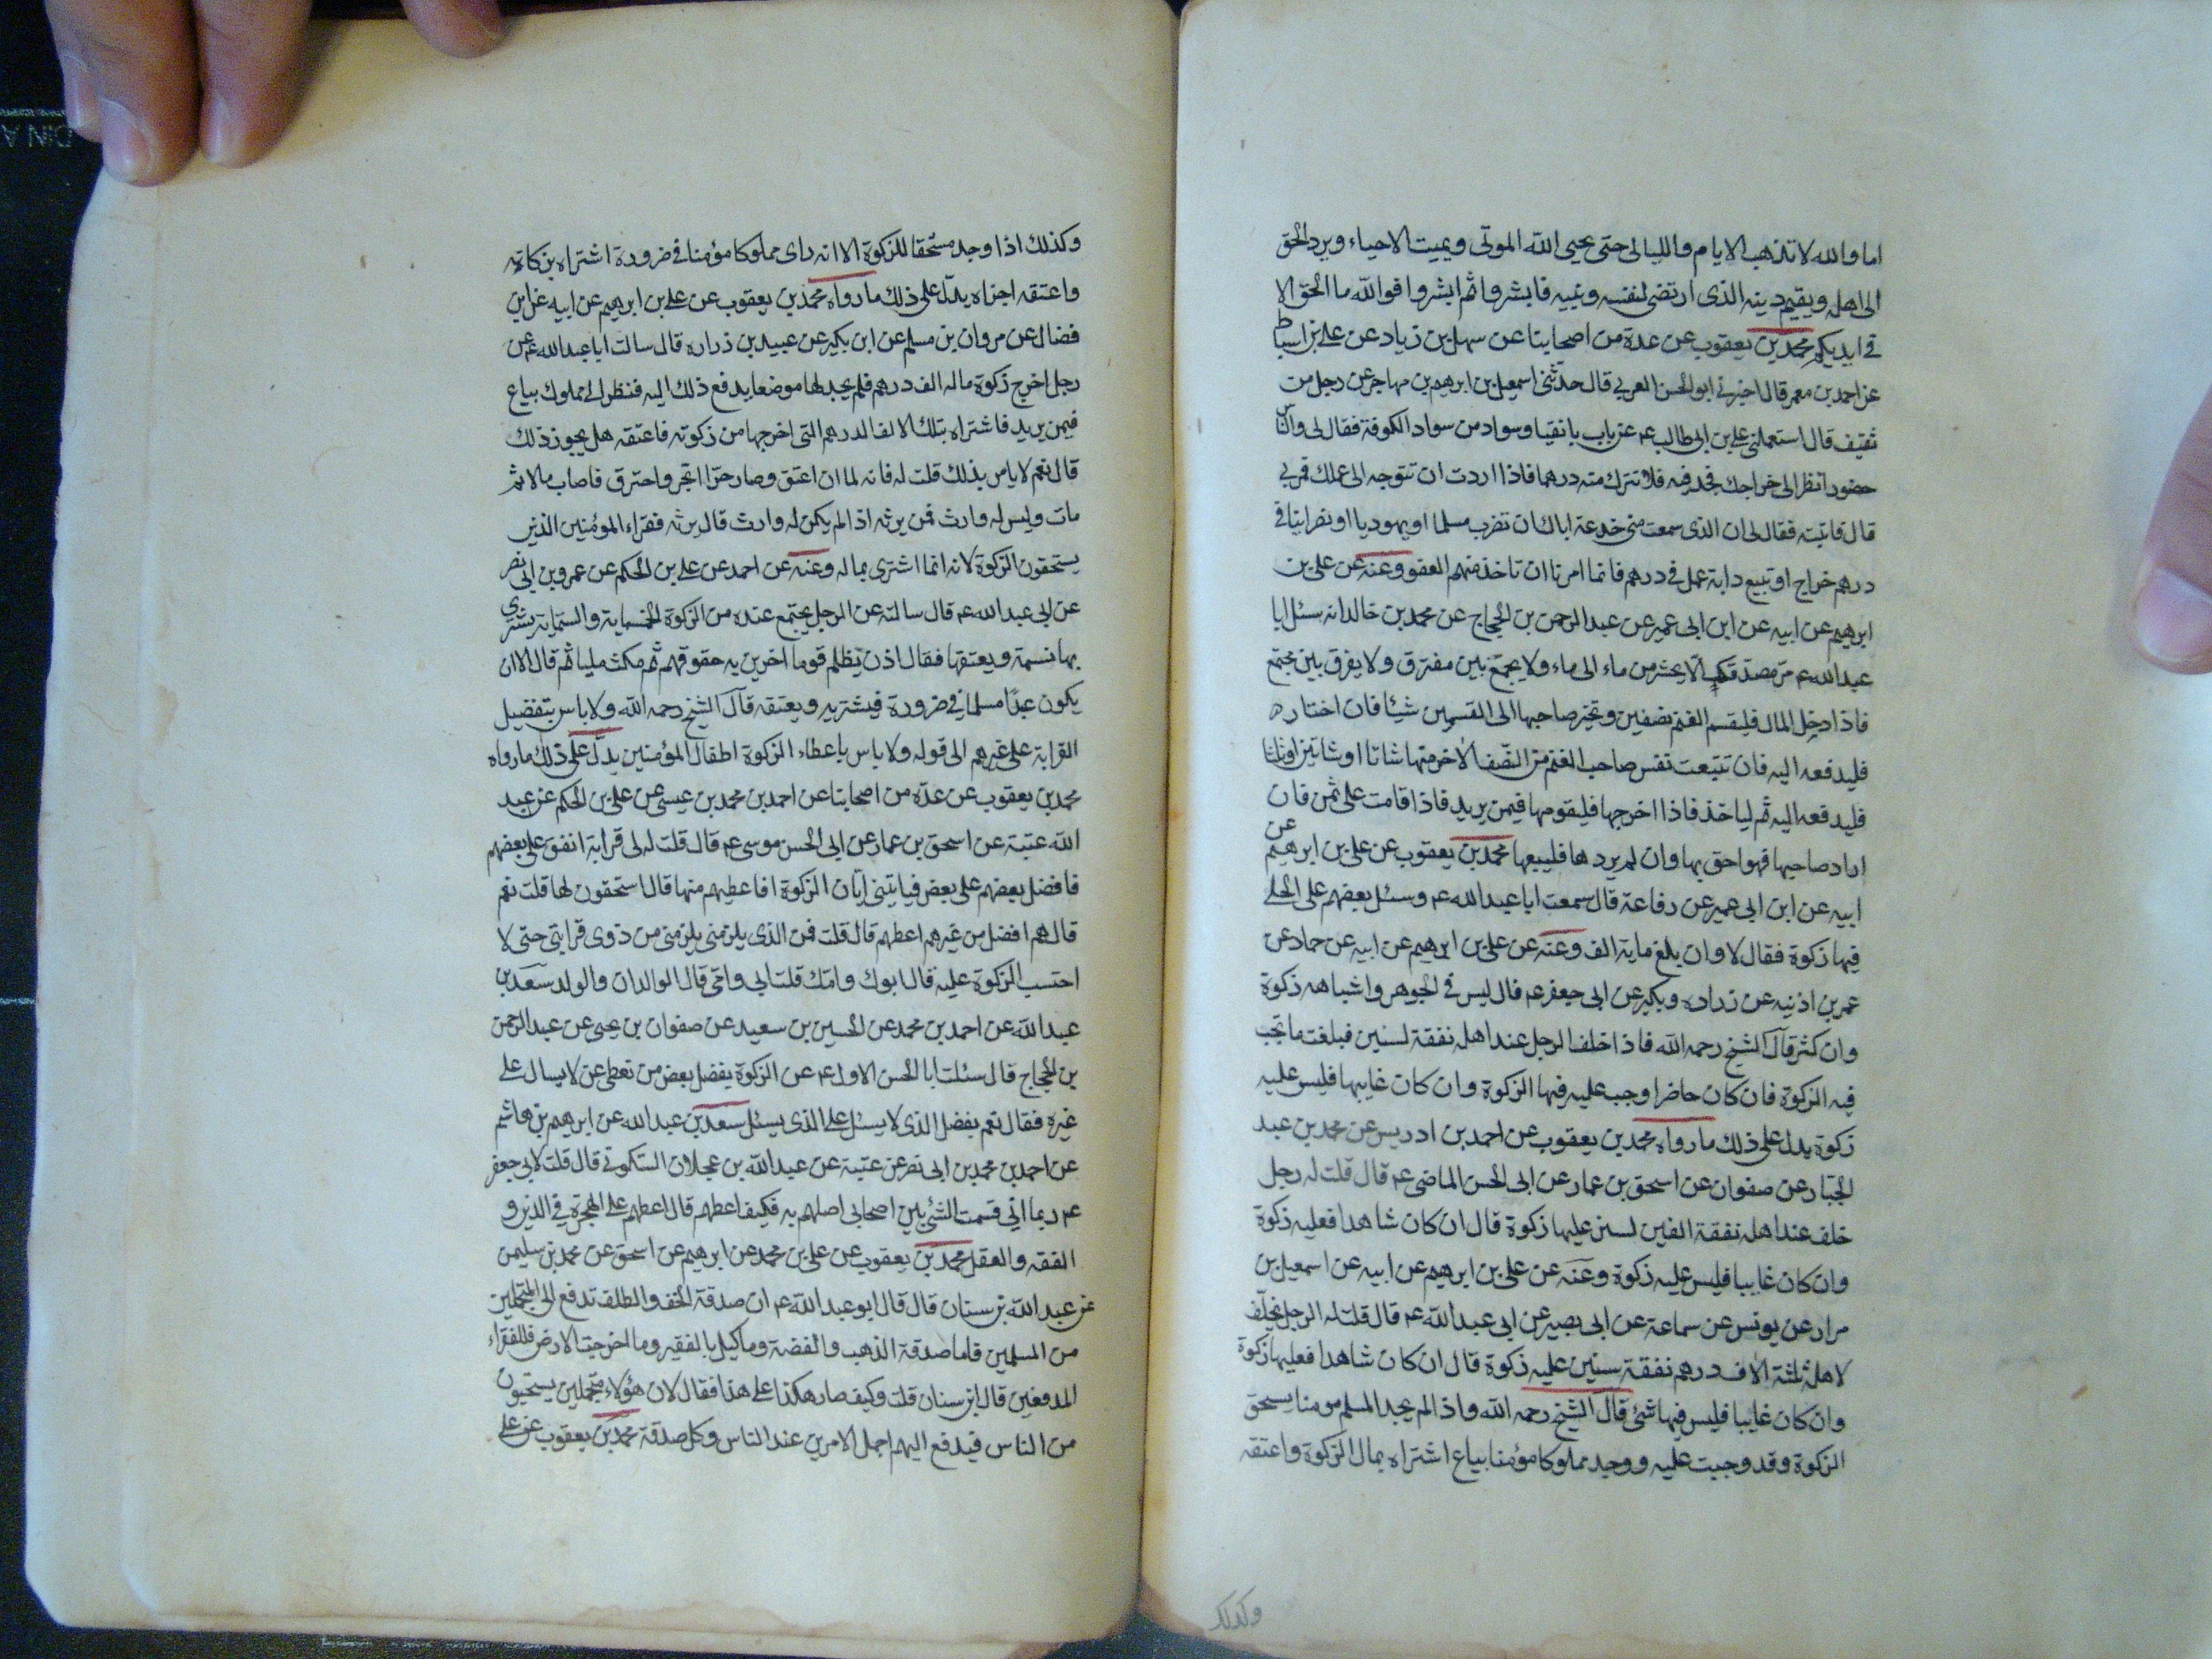 اما والله لا تذهب الايام والليالى حتى يحيى الله الموتى ويميت الاحياء ويرد الحق
الى اهله ويقيم دينه الذى ارتضى لنفسه ونبيه فابشروا ثم ابشروا فوالله ما الحق الا
فى ايديكم محمد بن يعقوب عن عدة من اصحابنا عن سهل بن زياد عن على بن اسباط
عن احمد بن معمر قال اخبرنى ابو الحسن العرنى قال حدثنى اسمعيل بن ابرهيم بن مهاجر عن رجل من
ثقيف قال استعملنى على بن ابى طالب ع م على بانقيا وسواد من سواد الكوفة فقال لى والناس
حضور انظر الى خراجك فجد فيه فلا تترك منه درهما فاذا اردت ان تتوجه الى عملك فمر بى
قال فاتيته فقال لى ان الذى سمعت منى خدعة اياك ان تضرب مسلما او يهوديا او نصرانيا فى
درهم خراج او تبيع دابة عمل فى درهم فانما امرنا ان ناخذ منهم العفو وعنه عن على بن
ابرهيم عن ابيه عن ابن ابى عمير عن عبد الرحمن بن الحجاج عن محمد بن خالد انه سئل ابا
عبد الله ع م مر مصدقك الا يحشر من ماء الى ماء ولا يجمع بين مفترق ولا يفرق بين مجتمع
فاذا دخل المال فليقسم الغنم نصفين وتخير صاحبها الى القسمين شيئا فان اختاره
فليدفعه اليه فان تتبعت نفس صاحب الغنم من النصف الاخر منها شاتا او شاتين او ثلثا
فليدفعه اليه ثم لياخذ فاذا اخرجها فليقومها فيمن يريد فاذا قامت على ثمن فان
اراد صاحبها فهو احق بها وان لم يردها فليبيعها محمد بن يعقوب عن على بن ابرهيم عن
ابيه عن ابن ابى عمير عن رفاعة قال سمعت ابا عبد الله ع م وسئل بعضهم على الحلى
فيها زكوة فقال لا وان بلغ ماية الف وعنه عن على بن ابرهيم عن ابيه عن حماد عن
عمر بن اذنيه عن زراره وبكير عن ابى جعفر ع م قال ليس فى الجوهر واشباهه زكوة
وان كثر قال الشيخ رحمه الله فاذا خلف الرجل عند اهله نفقة لسنين فبلغت ما تجب
فيه الزكوة فان كان حاضرا وجب عليه فيها الزكوة وان كان غايبها فليس عليه
زكوة يدل على ذلك ما رواه محمد بن يعقوب عن احمد بن ادريس عن محمد بن عبد
الجبار عن صفوان عن اسحق بن عمار عن ابى الحسن الماضى ع م قال قلت له رجل
خلف عند اهله نفقة الفين لسنين عليها زكوة قال ان كان شاهدا فعليه زكوة
وان كان غايبا فليس عليه زكوة وعنه عن على بن ابرهيم عن ابيه عن اسمعيل بن
مرار عن يونس عن سماعة عن ابى بصير عن ابى عبد الله ع م قال قلت له الرجل يخلف
لاهله ثلثة الاف درهم نفقة سنين عليه زكوة قال ان كان شاهدا فعليها زكوة
وان كان غايبا فليس فيها شئ قال الشيخ رحمه الله واذا لم يجد المسلم مومنا يستحق
الزكوة وقد وجبت عليه ووجد مملوكا مؤمنا يباع اشتراه بمال الزكوة واعتقه
وكذلك
وكذلك اذا وجد مستحقا للزكوة الا انه راى مملوكا مؤمنا فى ضرورة اشتراه بزكاته
واعتقه اجزاه يدل على ذلك ما رواه محمد بن يعقوب عن على بن ابرهيم عن ابيه عن ابن
فضال عن مروان بن مسلم عن ابن بكير عن عبيد بن زراره قال سالت ابا عبد الله ع م عن
رجل اخرج زكوة ماله الف درهم فلم يجد لها موضعا يدفع ذلك اليه فنظر الى مملوك يباع
فيمن يريد فاشتراه بتلك الالف الدرهم التى اخرجها من زكوته فاعتقه هل يجوز ذلك
قال نعم لا باس بذلك قلت له فانه لما ان اعتق وصار حرا اتجر واحترف فاصاب مالا ثم
مات وليس له وارث فمن يرثه اذا لم يكن له وارث قال يرثه فقراء المؤمنين الذين
يستحقون الزكوة لانه انما اشترى بماله وعنه عن احمد عن على بن الحكم عن عمرو بن ابى نصر
عن ابى عبد الله ع م قال سالته عن الرجل يجتمع عنده من الزكوة الخمسماية والستماية يشترى
بها نسمة ويعتقها فقال اذن يظلم قوما اخرين به حقوقهم ثم مكث مليا ثم قال الا ان
يكون عبدا مسلما فى ضرورة فيشتريه ويعتقه قال الشيخ رحمه الله ولا باس بتفضيل
القرابة على غيرهم الى قوله ولا باس باعطاء الزكوة اطفال المؤمنين يدل على ذلك ما رواه
محمد بن يعقوب عن عدة من اصحابنا عن احمد بن محمد بن عيسى عن على بن الحكم عن عبد
الله عتبة عن اسحق بن عمار عن ابى الحسن موسى ع م قال قلت له لى قرابة انفق على بعضهم
فافضل بعضهم على بعض فياتينى ابان الزكوة افاعطيهم منها قال استحقون لها قلت نعم
قال هم افضل من غيرهم اعطهم قال قلت فمن الذى يلزمنى يلزمنى من ذوى قرابتى حتى لا
احتسب الزكوة عليه قال ابوك وامك قلت ابى وامى قال الوالدان والولد سعد بن
عبد الله عن احمد بن محمد عن الحسين بن سعيد عن صفوان بن يحيى عن عبد الرحمن
بن الحجاج قال سئلت ابا الحسن الاول ع م عن الزكوة يفضل بعض من تعطى عن لا يسال على
غيره فقال نعم يفضل الذى لا يسئل على الذى يسئل سعد بن عبد الله عن ابرهيم بن هاشم
عن احمد بن محمد بن ابى نصر عن عتبة عن عبد الله بن عجلان السكونى قال قلت لابى جعفر
ع م ربما انى قسمت الشئ بين اصحابى اصلهم به فكيف اعطهم قال اعطهم على الهجرة فى الدين و
الفقه والعقل محمد بن يعقوب عن على بن محمد عن ابرهيم عن اسحق عن محمد بن سليمن
عن عبد الله بن سنان قال قال ابو عبد الله ع م ان صدقة الخف والظلف تدفع الى المتجملين
من المسلمين فاما صدقة الذهب والفضة وما كيل بالفقير وما اخرجت الارض فللفقراء
المدقعين قال ابن سنان قلت وكيف صار هكذا على هذا فقال لان هؤلاء متجملين يستحيون
من الناس فيدفع اليهم اجمل الامرين عند الناس وكل صدقة محمد بن يعقوب عن على